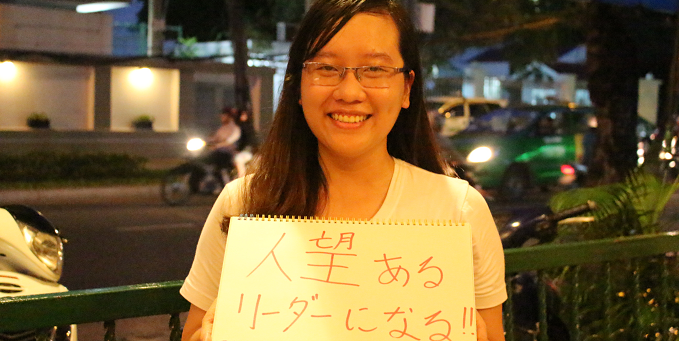 人望ある
リーダーになる!!